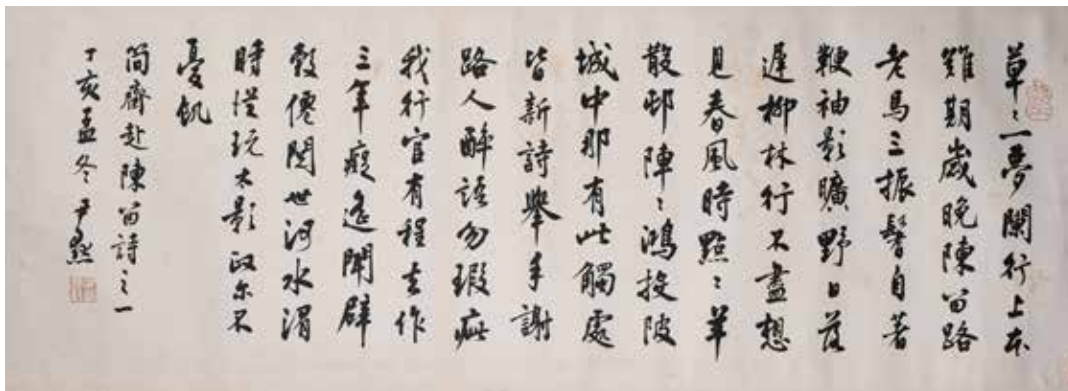 草〻一夢闌行止本
難期歲晚陳留路
老馬三振鬐自看
鞭袖影曠野日落
遲柳林行不盡想
見春風時點〻羊
散邨陣〻鴻投陂
城中那有此觸處
皆新詩舉手謝
路人醉語勿瑕疵
我行官有程去作
三年癡遙聞辟
穀僊閱世河水湄
時從玩木影政尔不
憂飢
簡齋赴陳留詩之一
丁亥孟冬 尹默